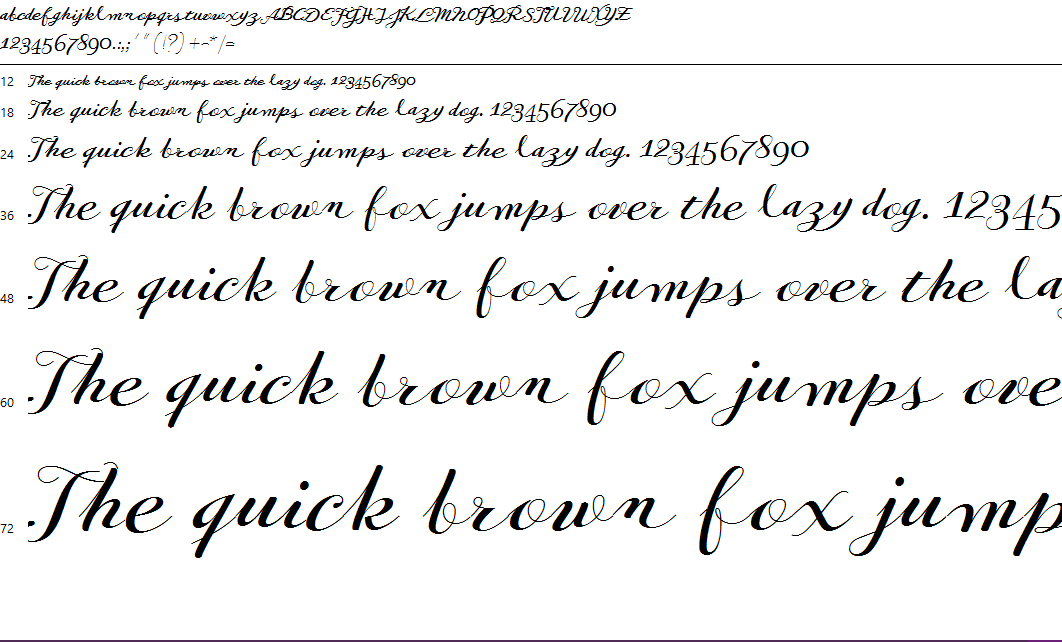 abcdefghijklmnopqrstuvwxyz ABCDEFGHIJKLMNOPQRSTUVWXYZ
1234567890.:,; ' " (!?) +-*/=
12 The quick brown fox jumps over the lazy dog. 1234567890
18 The quick brown fox jumps over the lazy dog. 1234567890
24 The quick brown fox jumps over the lazy dog. 1234567890
36 The quick brown fox jumps over the lazy dog. 12345
48 The quick brown fox jumps over the la
60 The quick brown fox jumps ove
72 The quick brown fox jump